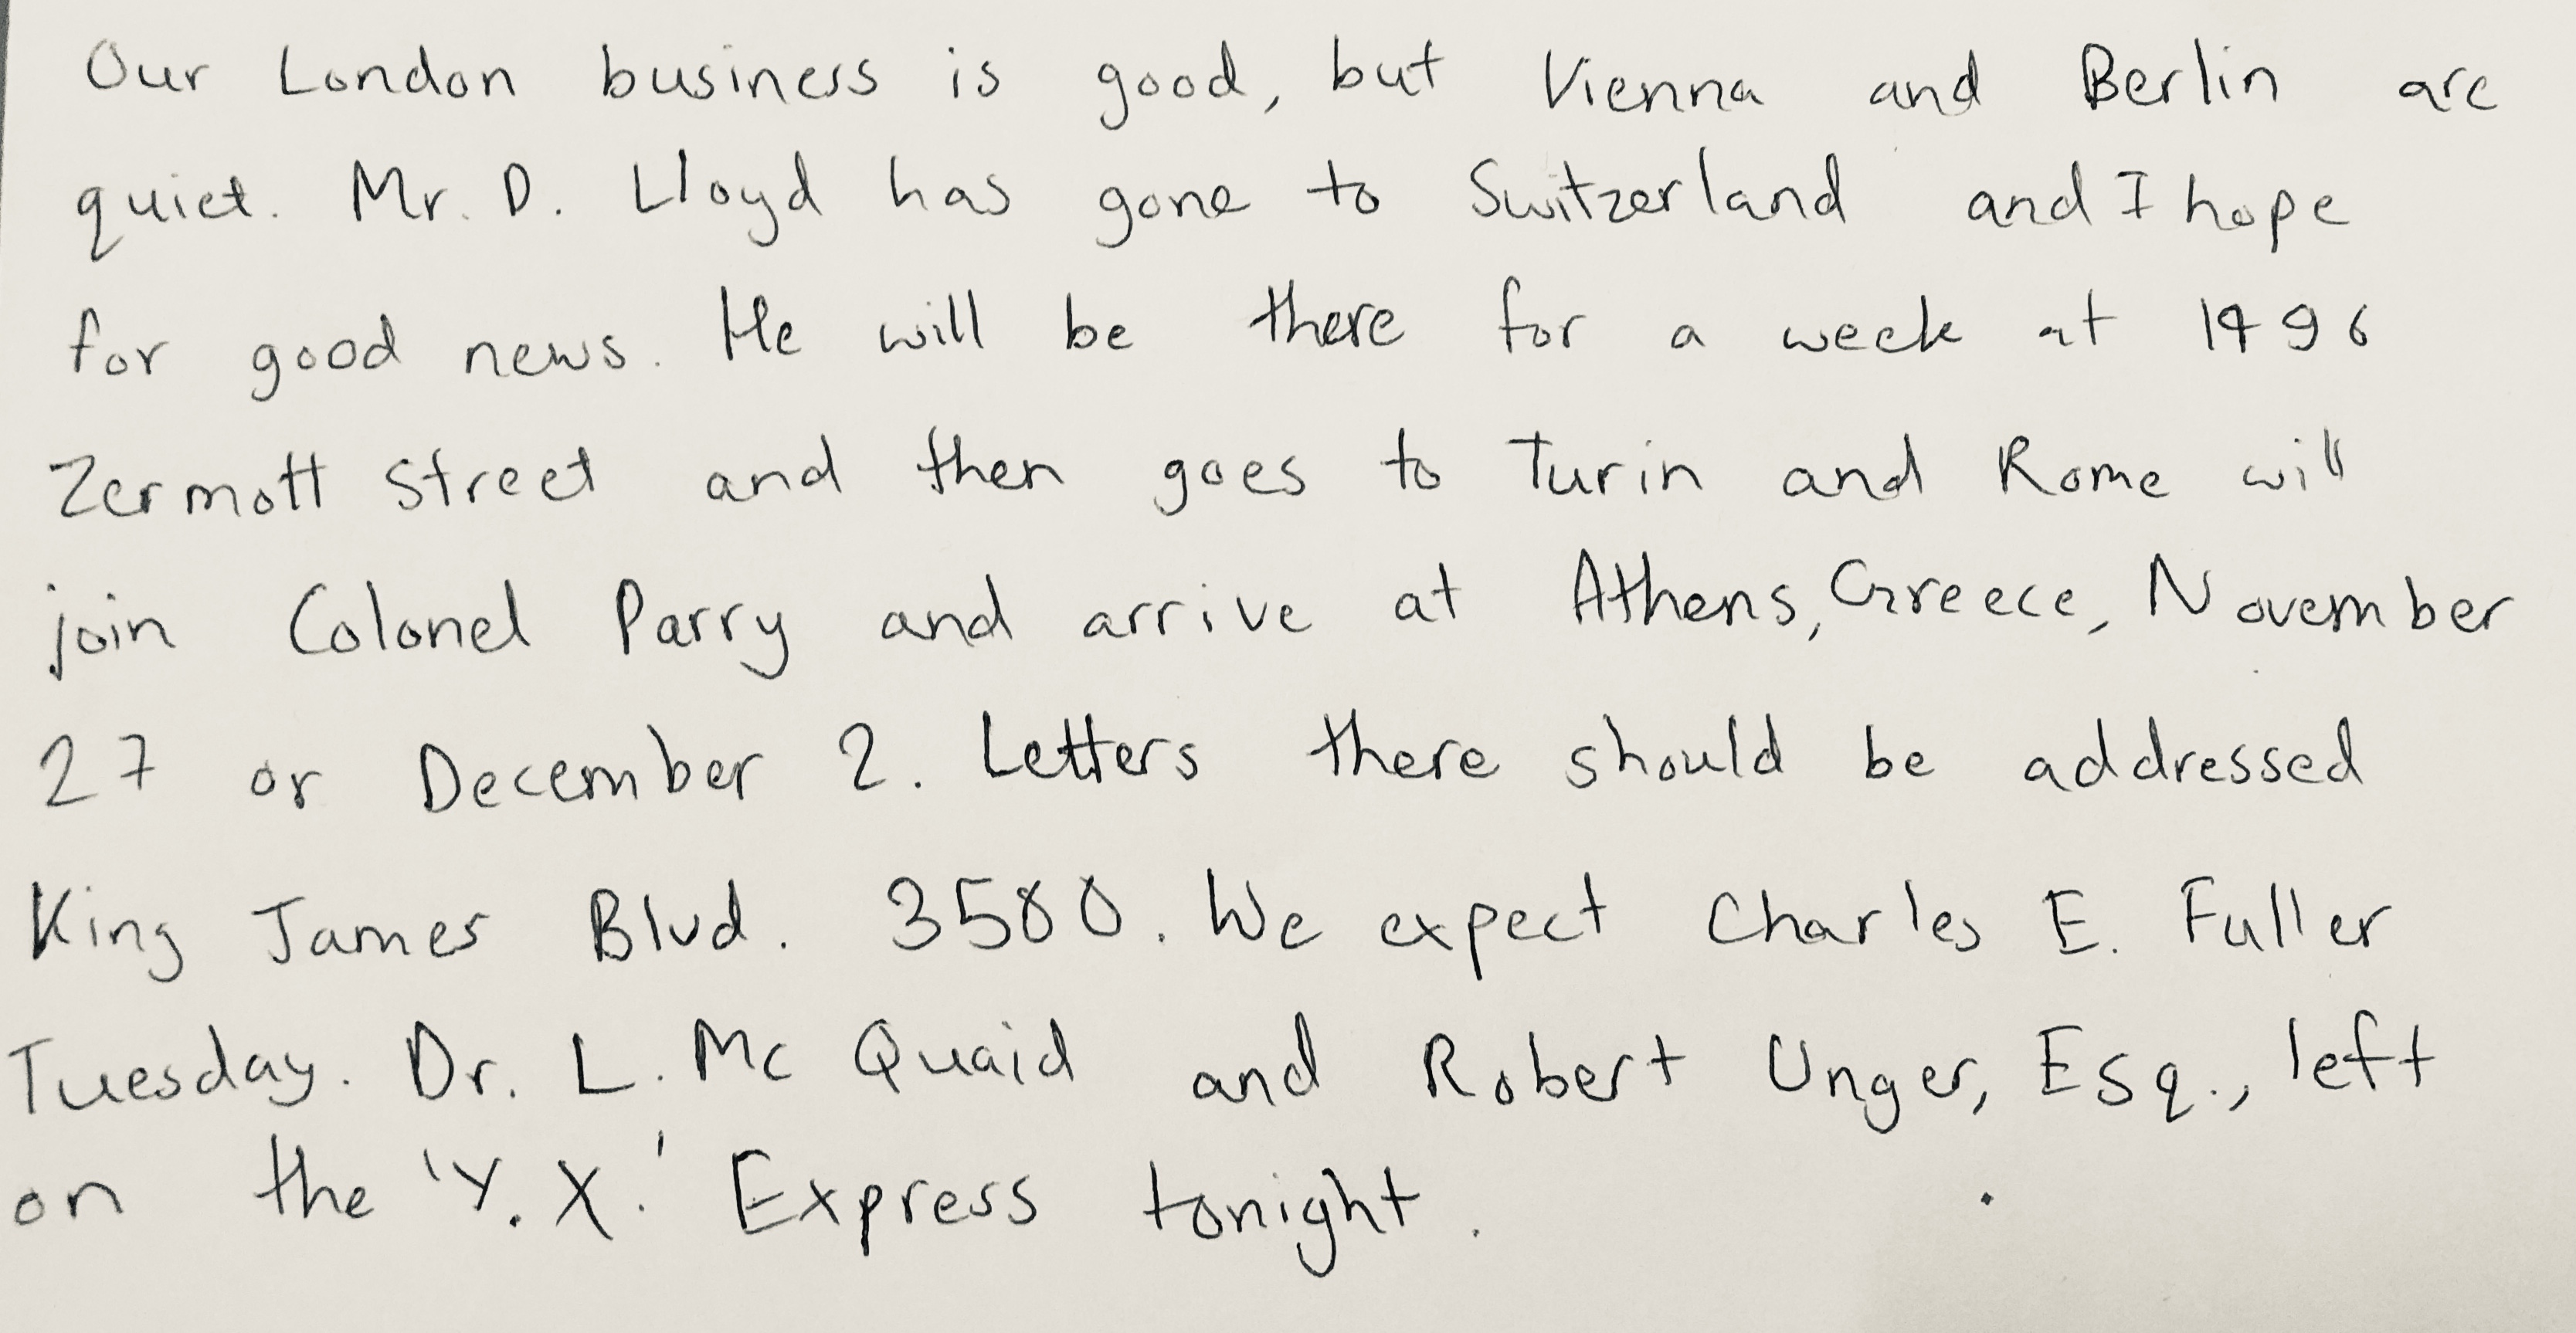 Our London business is good, but Vienna and Berlin are
quiet. Mr. D. Lloyd has gone to Switzerland and I hope
for good news. He will be there for a week at 1496
Zermott street and then goes to Turin and Rome will
join Colonel Parry and arrive at Athens, Greece, November
27 or December 2. Letters there should be addressed
King James Blvd. 3580. We expect Charles E. Fuller
Tuesday. Dr. L. Mc Quaid and Robert Unger, Esq., left
on the 'Y. X.' Express tonight.